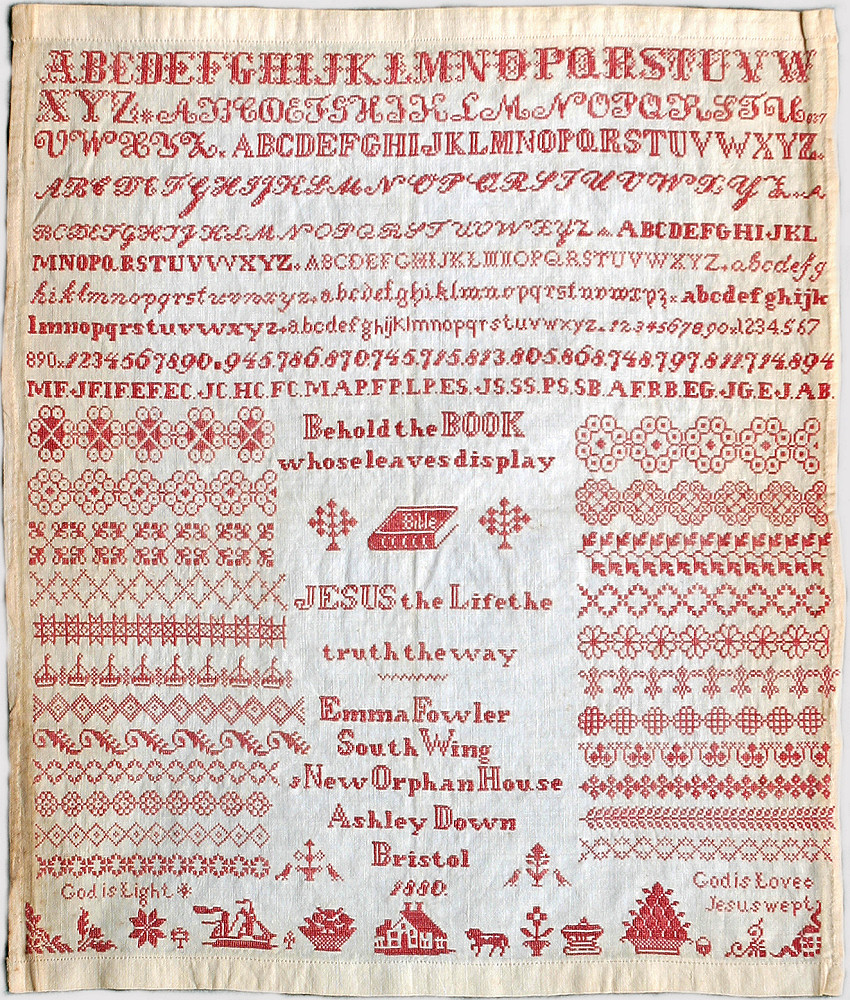 ABCDEFGHIJKLMNOPQRSTUVW
XYZ ABCDEFGHIJKLMNOPQRSTU
VWXYZ ABCDEFGHIJKLMNOPQRSTUVWXYZ
ABCDEFGHIJKLMNOPQRSTUVWXYZ A
BCDEFGHIJKLMNOPQRSTUVWXYZ ABCDEFGHIJKL
MNOPQRSTUVWXYZ ABCDEFGHIJKLMNOPQRSTUVWXYZ abcdefg
hiklmnopqrstuvwxyz abcdefghiklmnopqrstuvwxyz abcdefghijk
lmnopqrstuvwxyz abcdefghijklmnopqrstuvwxyz 1234567890 1234567
890 1234567890 945.786.870.745.715.813.805.868.748.797.811.714.894
MF.JF.IF.EF.EC.JC.HC.FC.MA.PF.P.LP.ES.JS.SS.PS.SB.AF.RB.EG.JG.EJ.AB.
Behold the BOOK
whose leaves display
Bible
JESUS the Life the
truth the way
Emma Fowler
South Wing
New Orphan House
Ashley Down
Bristol
1880.
God is Light
God is Love
Jesus wept